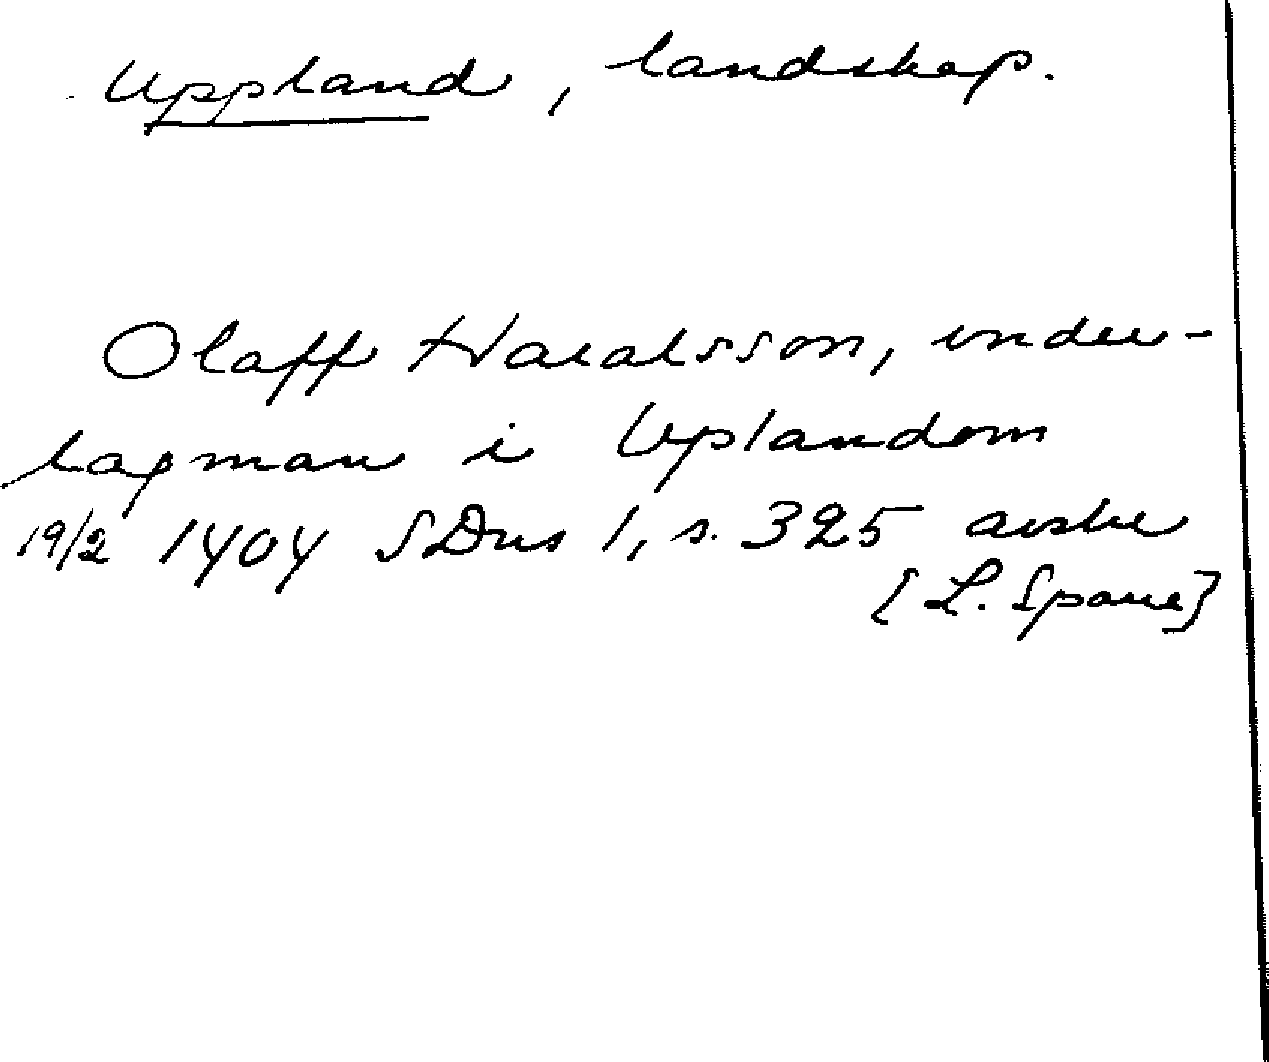 Uppland, landskap.
Olaff Haralsson, under-
lagman i Uplandom
19/2 1404 SDns 1, s. 325 avskr
[L. Sparre]